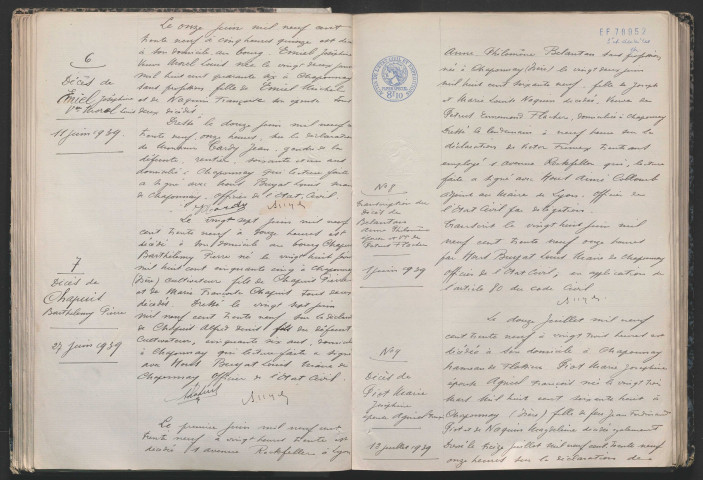 6
Décès de
Emiel Joséphine
Vve Morel Louis
11 juin 1939
Le onze juin mil neuf cent
trente neuf à cinq heures quinze est décédée
à son domicile au bourg Emiel Joséphine
Veuve Morel Louis née le vingt deux juin
mil huit cent quarante dix à Chaponnay
sans profession fille de Emiel Michel
et de Naquin Françoise ses
deux décédés.
Dressé le douze juin mil neuf cent
trente neuf, onze heures, sur la déclaration
de Monsieur Cardy Jean, gendre de la
défunte, rentier, soixante et un ans
domicilié à Chaponnay qui lecture faite
a signé avec Nous Buyat Louis maire
de Chaponnay, officier de l'Etat Civil.
7
Décès de
Chapuis
Barthélemy Pierre
27 juin 1939
Le vingt sept juin mil neuf
cent trente neuf à onze heures est
décédé à son domicile au bourg Chapuis
Barthélemy Pierre né le vingt huit juin
mil huit cent cinquante cinq à Chaponnay
(Isère) cultivateur fils de Chapuis Pierre
et de Marie Françoise Chapuis tous deux
décédés. Dressé le vingt sept juin
mil neuf cent trente neuf sur la déclaration
de Chapuis Alfred fils du défunt
cultivateur, cinquante six ans, domicilié
à Chaponnay qui lecture faite a signé
avec Nous Buyat Louis Maire de
Chaponnay Officier de l'Etat Civil.
Le premier juin mil neuf cent
trente neuf à vingt heures trente est
décédée 1 avenue Rockfeller à Lyon
EF 78952
N°8
Transcription du
décès de
Balandon
Anne Philomène
Flacher
1 juin 1939
Anne Philomène Balandon sans profession
née à Chaponnay (Isère) le vingt deux juin
mil huit cent soixante neuf, fille de Joseph
et Marie Louise Naquin décédés. Veuve de
Petrus Emmanuel Flacher, domiciliée à Chaponnay
Dressé le lendemain à neuf heures sur la
déclaration de Victor trente ans
employé 1 avenue Rockfeller qui, lecture
faite a signé avec Nous Aimé Collomb
adjoint au Maire de Lyon. Officier de
l'Etat Civil par délégation.
Transcrit le vingt juin mil
neuf cent trente neuf onze heures
par Nous Buyat Louis Maire de Chaponnay
officier de l'Etat Civil, en application de
l'article 80 du code Civil
N°9
Décès de
Piot Marie
Joséphine
épouse Aguel François
12 juillet 1939
Le douze juillet mil neuf
cent trente neuf à vingt trois heures est
décédée à son domicile à Chaponnay
hameau de Piot Marie Joséphine
épouse Aguel François née le vingt trois
Mars mil huit cent soixante huit à
Chaponnay (Isère) fille de feu Jean Ferdinand
Piot et de Naquin Magdeleine décédés
Dressé le treize juillet mil neuf cent trente neuf
onze heures sur la déclaration de